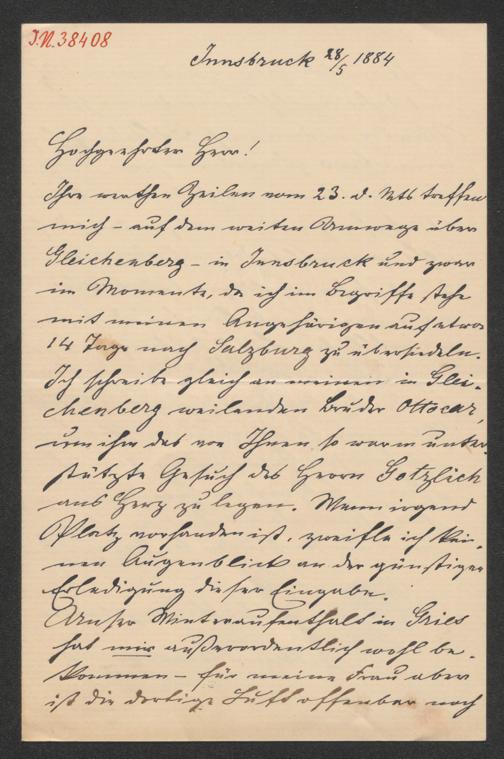 I.N. 38408
Innsbruck 28/5 1884
Hochgeehrter Herr!
Ihre werthen Zeilen vom 23. d. Mts treffen
mich – auf dem weiten Umwege über
Gleichenberg – in Innsbruck und zwar
im Momente, da ich im Begriffe stehe
mit meinen Angehörigen auf etwa
14 Tage nach Salzburg zu übersiedeln.
Ich schreibe gleich an meinen in Glei-
chenberg weilenden Bruder Ottocar,
um ihm das von Ihnen so warm unter-
stützte Gesuch des Herrn Gotzlich
ans Herz zu legen. Wenn irgend
Platz vorhanden ist, zweifle ich kei-
nen Augenblick an der günstigen
Erledigung dieser Eingabe.
Unser Winteraufenthalt in Gries
hat mir außerordentlich wohl be-
kommen – für meine Frau aber
ist die dortige Luft offenbar noch